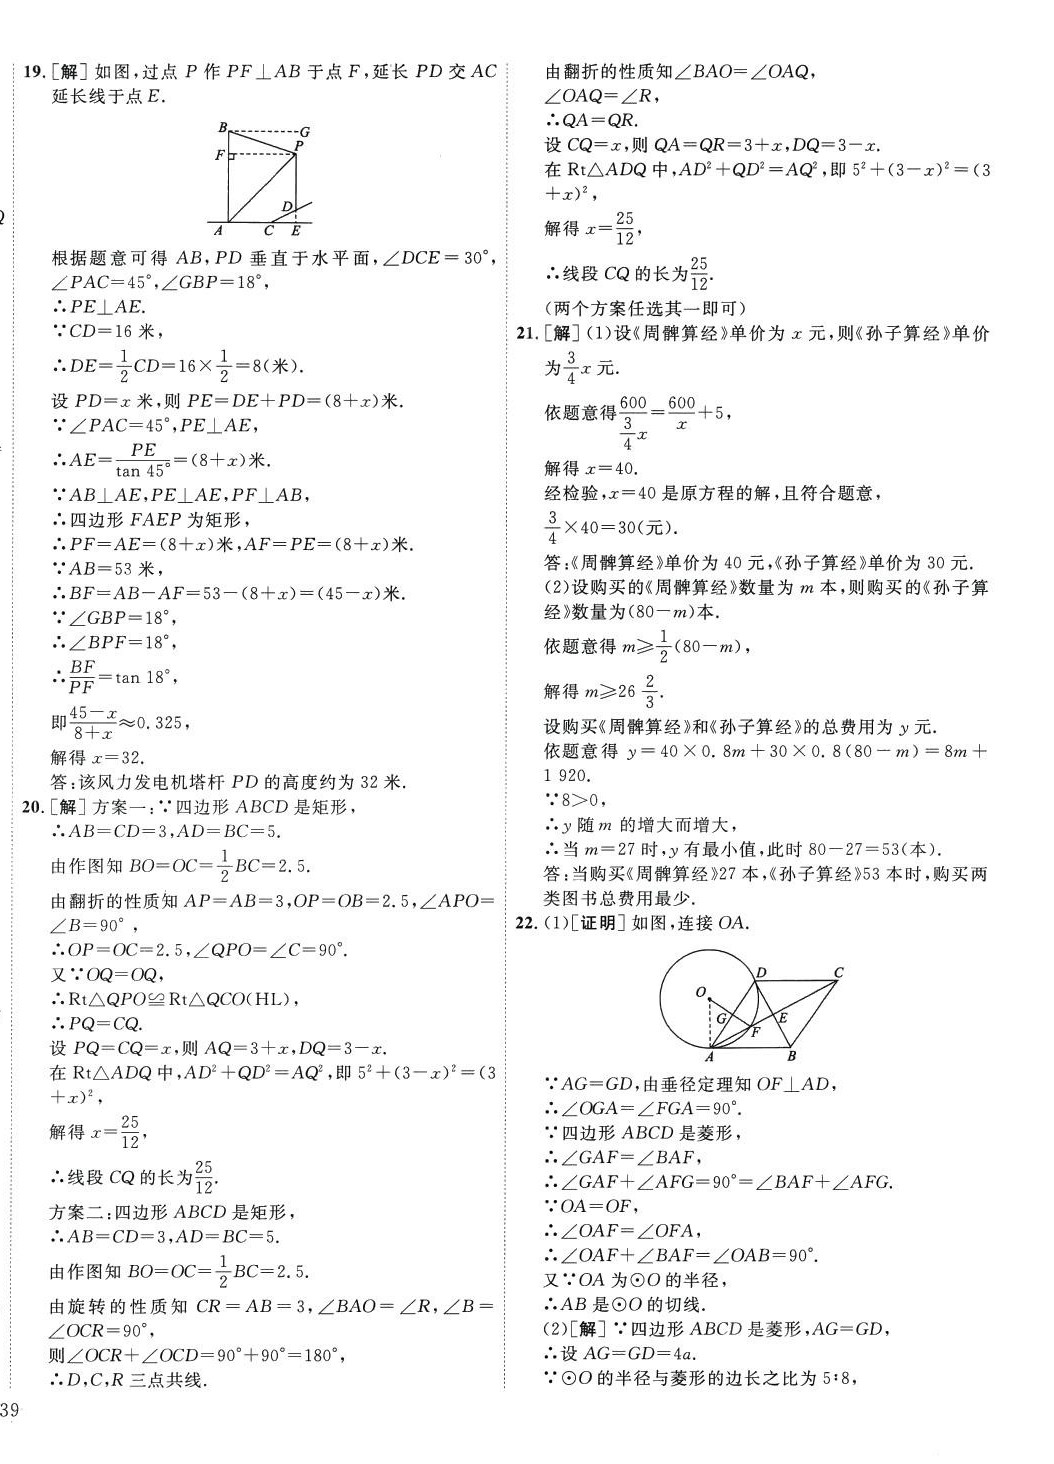 19.[解]如图,过点 P 作 PF⊥AB 于点 F,延长 PD 交 AC
延长线于点 E.
B
G
P
F
D
A
C
E
根据题意可得 AB,PD 垂直于水平面,∠DCE=30°,
∠PAC=45°,∠GBP=18°,
∴PE⊥AE.
∵CD=16 米,
∴DE=1/2CD=16×1/2=8(米).
设 PD=x 米,则 PE=DE+PD=(8+x)米.
∵∠PAC=45°,PE⊥AE,
∴AE=PE/tan 45°=(8+x)米.
∵AB⊥AE,PE⊥AE,PF⊥AB,
∴四边形 FAEP 为矩形,
∴PF=AE=(8+x)米,AF=PE=(8+x)米.
∵AB=53 米,
∴BF=AB-AF=53-(8+x)=(45-x)米.
∵∠GBP=18°,
∴∠BPF=18°,
∴BF/PF=tan 18°,
即(45-x)/(8+x)≈0.325,
解得 x=32.
答:该风力发电机塔杆 PD 的高度约为 32 米.
20.[解]方案一:∵四边形 ABCD 是矩形,
∴AB=CD=3,AD=BC=5.
由作图知 BO=OC=1/2BC=2.5.
由翻折的性质知 AP=AB=3,OP=OB=2.5,∠APO=
∠B=90°,
∴OP=OC=2.5,∠QPO=∠C=90°.
又∵OQ=OQ,
∴Rt△QPO≌Rt△QCO(HL),
∴PQ=CQ.
设 PQ=CQ=x,则 AQ=3+x,DQ=3-x.
在 Rt△ADQ 中,AD²+QD²=AQ²,即 5²+(3-x)²=(3
+x)²,
解得 x=25/12,
∴线段 CQ 的长为25/12.
方案二:四边形 ABCD 是矩形,
∴AB=CD=3,AD=BC=5.
由作图知 BO=OC=1/2BC=2.5.
由旋转的性质知 CR=AB=3,∠BAO=∠R,∠B=
∠OCR=90°,
则∠OCR+∠OCD=90°+90°=180°,
∴D,C,R 三点共线.
由翻折的性质知∠BAO=∠OAQ,
∠OAQ=∠R,
∴QA=QR.
设 CQ=x,则 QA=QR=3+x,DQ=3-x.
在 Rt△ADQ 中,AD²+QD²=AQ²,即 5²+(3-x)²=(3
+x)²,
解得 x=25/12,
∴线段 CQ 的长为25/12.
(两个方案任选其一即可)
21.[解](1)设《周髀算经》单价为 x 元,则《孙子算经》单价
为3/4x 元.
依题意得600/(3/4x)=600/x+5,
解得 x=40.
经检验,x=40 是原方程的解,且符合题意,
3/4×40=30(元).
答:《周髀算经》单价为 40 元,《孙子算经》单价为 30 元.
(2)设购买的《周髀算经》数量为 m 本,则购买的《孙子算
经》数量为(80-m)本.
依题意得 m≥1/2(80-m),
解得 m≥26 2/3.
设购买《周髀算经》和《孙子算经》的总费用为 y 元.
依题意得 y=40×0.8m+30×0.8(80-m)=8m+
1 920.
∵8>0,
∴y 随 m 的增大而增大,
∴当 m=27 时,y 有最小值,此时 80-27=53(本).
答:当购买《周髀算经》27 本,《孙子算经》53 本时,购买两
类图书总费用最少.
22.(1)[证明]如图,连接 OA.
D
C
O
G
E
F
A
B
∵AG=GD,由垂径定理知 OF⊥AD,
∴∠OGA=∠FGA=90°.
∵四边形 ABCD 是菱形,
∴∠GAF=∠BAF,
∴∠GAF+∠AFG=90°=∠BAF+∠AFG.
∵OA=OF,
∴∠OAF=∠OFA,
∴∠OAF+∠BAF=∠OAB=90°.
又∵OA 为⊙O 的半径,
∴AB 是⊙O 的切线.
(2)[解]∵四边形 ABCD 是菱形,AG=GD,
∴设 AG=GD=4a.
∵⊙O 的半径与菱形的边长之比为 5∶8,
39